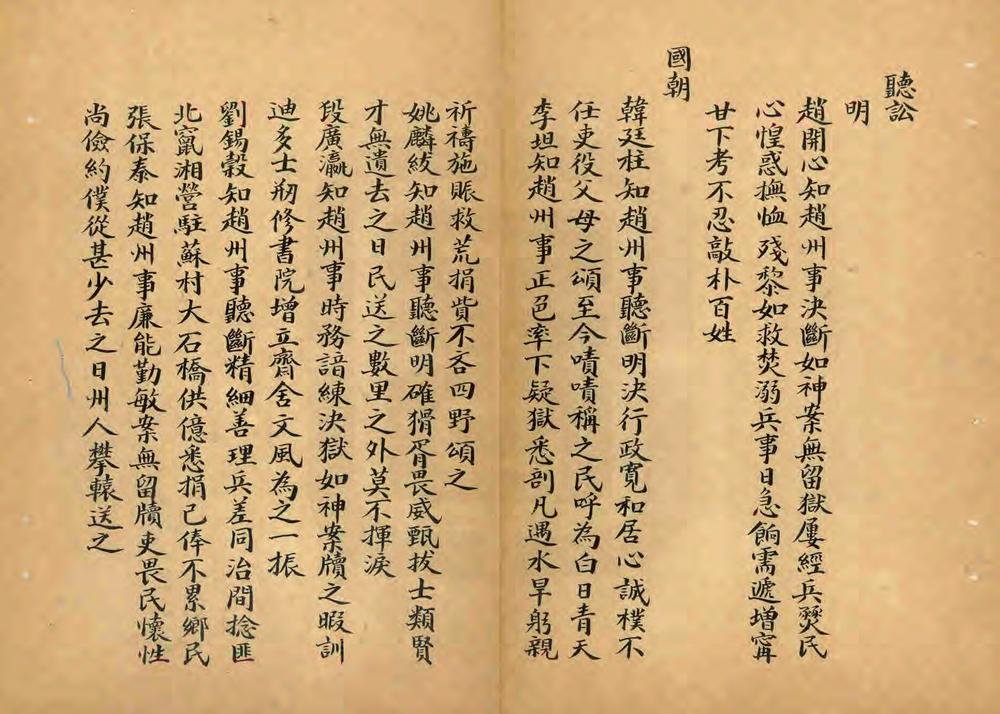 聽訟
明
趙開心知趙州事決斷如神案無留獄屢經兵燹民
心惶惑撫恤殘黎如救焚溺兵事日急餉需遞增寗
甘下考不忍敲朴百姓
國朝
韓廷柱知趙州事聽斷明決行政寬和居心誠樸不
任吏役父母之頌至今嘖嘖稱之民呼為白日青天
李坦知趙州事正色率下疑獄悉剖凡遇水旱躬親
祈禱施賑救荒捐貲不吝四野頌之
姚麟紱知趙州事聽斷明確猾胥畏威甄拔士類賢
才無遺去之日民送之數里之外莫不揮淚
段廣瀛知趙州事時務諳練決獄如神案牘之暇訓
迪多士剏修書院增立齋舍文風為之一振
劉錫穀知趙州事聽斷精細善理兵差同治間捻匪
北竄湘營駐蘇村大石橋供億悉捐己俸不累鄉民
張保泰知趙州事廉能勤敏案無留牘吏畏民懷性
尚儉約僕從甚少去之日州人攀轅送之